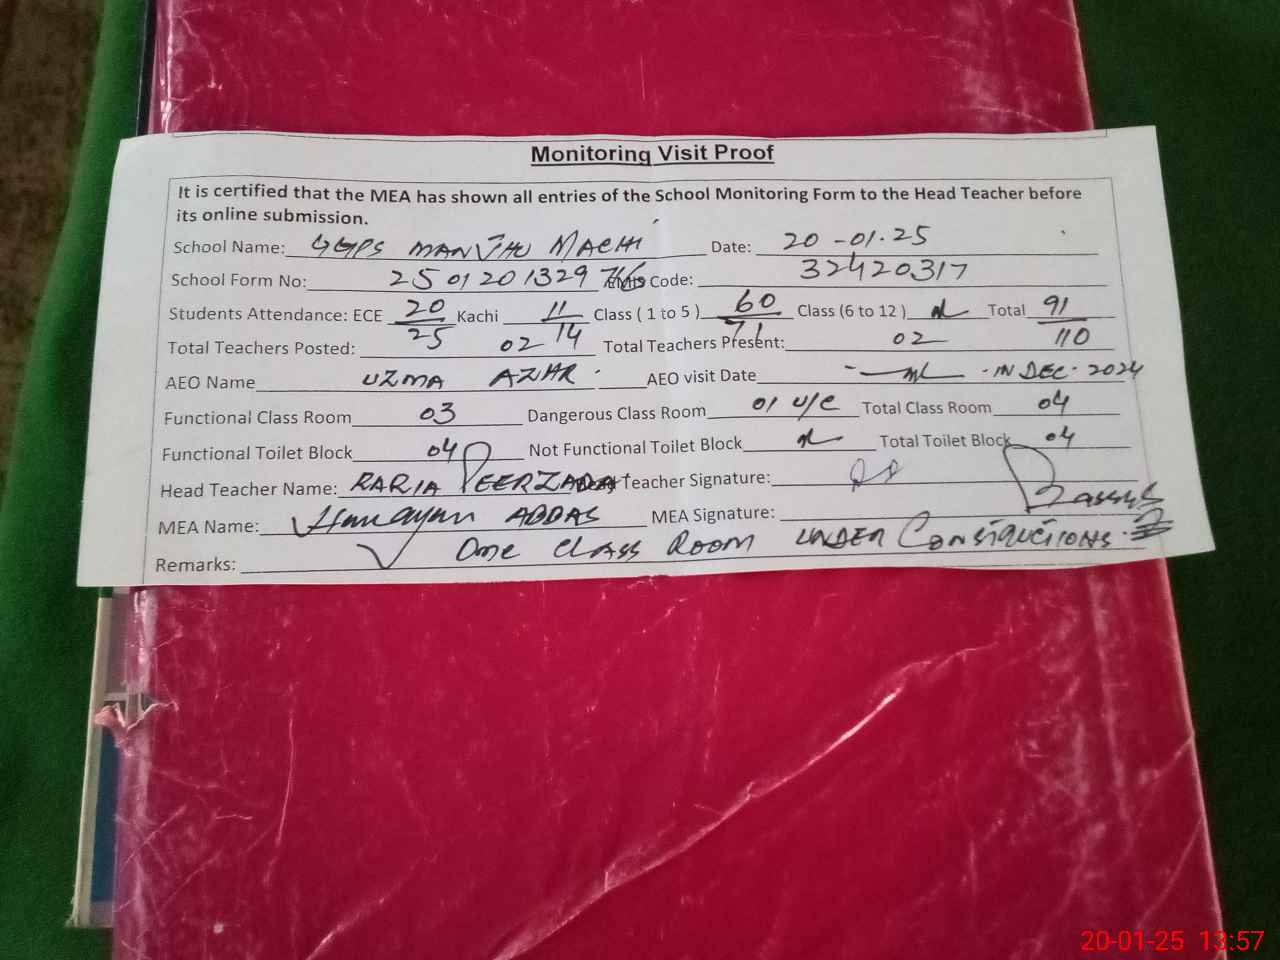 Monitoring Visit Proof
It is certified that the MEA has shown all entries of the School Monitoring Form to the Head Teacher before
its online submission.
School Name: GGPS MANJHU MACHI Date: 20-01-25
School Form No: 25012013297 EMIS Code: 32420317
Students Attendance: ECE 20/25 Kachi 11/14 Class ( 1 to 5 ) 60/71 Class (6 to 12 ) Total 91/110
Total Teachers Posted: 02 Total Teachers Present: 02
AEO Name UZMA AZHR AEO visit Date IN DEC. 2024
Functional Class Room 03 Dangerous Class Room 01 U/C Total Class Room 04
Functional Toilet Block 04 Not Functional Toilet Block Total Toilet Block 04
Head Teacher Name: RARIA PEERZADA Teacher Signature:
MEA Name: Humayun ABBAS MEA Signature:
Remarks: One CLASS ROOM UNDER CONSTRUCTIONS.
20-01-25 13:57